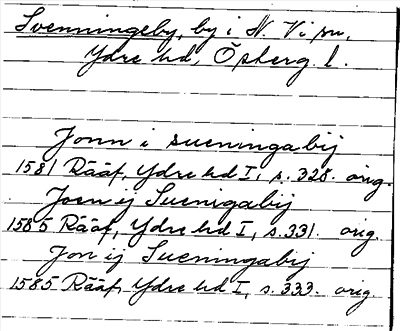 Svenningeby, by i N. Vi sn,
Ydre hd, Österg. l.
Jonn i sueningabij
1581 Rääf, Ydre hd I, s. 328. orig.
Joen ij Suenigabij
1585 Rääf, Ydre hd I, s. 331. orig.
Jon ij Sueningabij
1585 Rääf, Ydre hd I, s. 333. orig